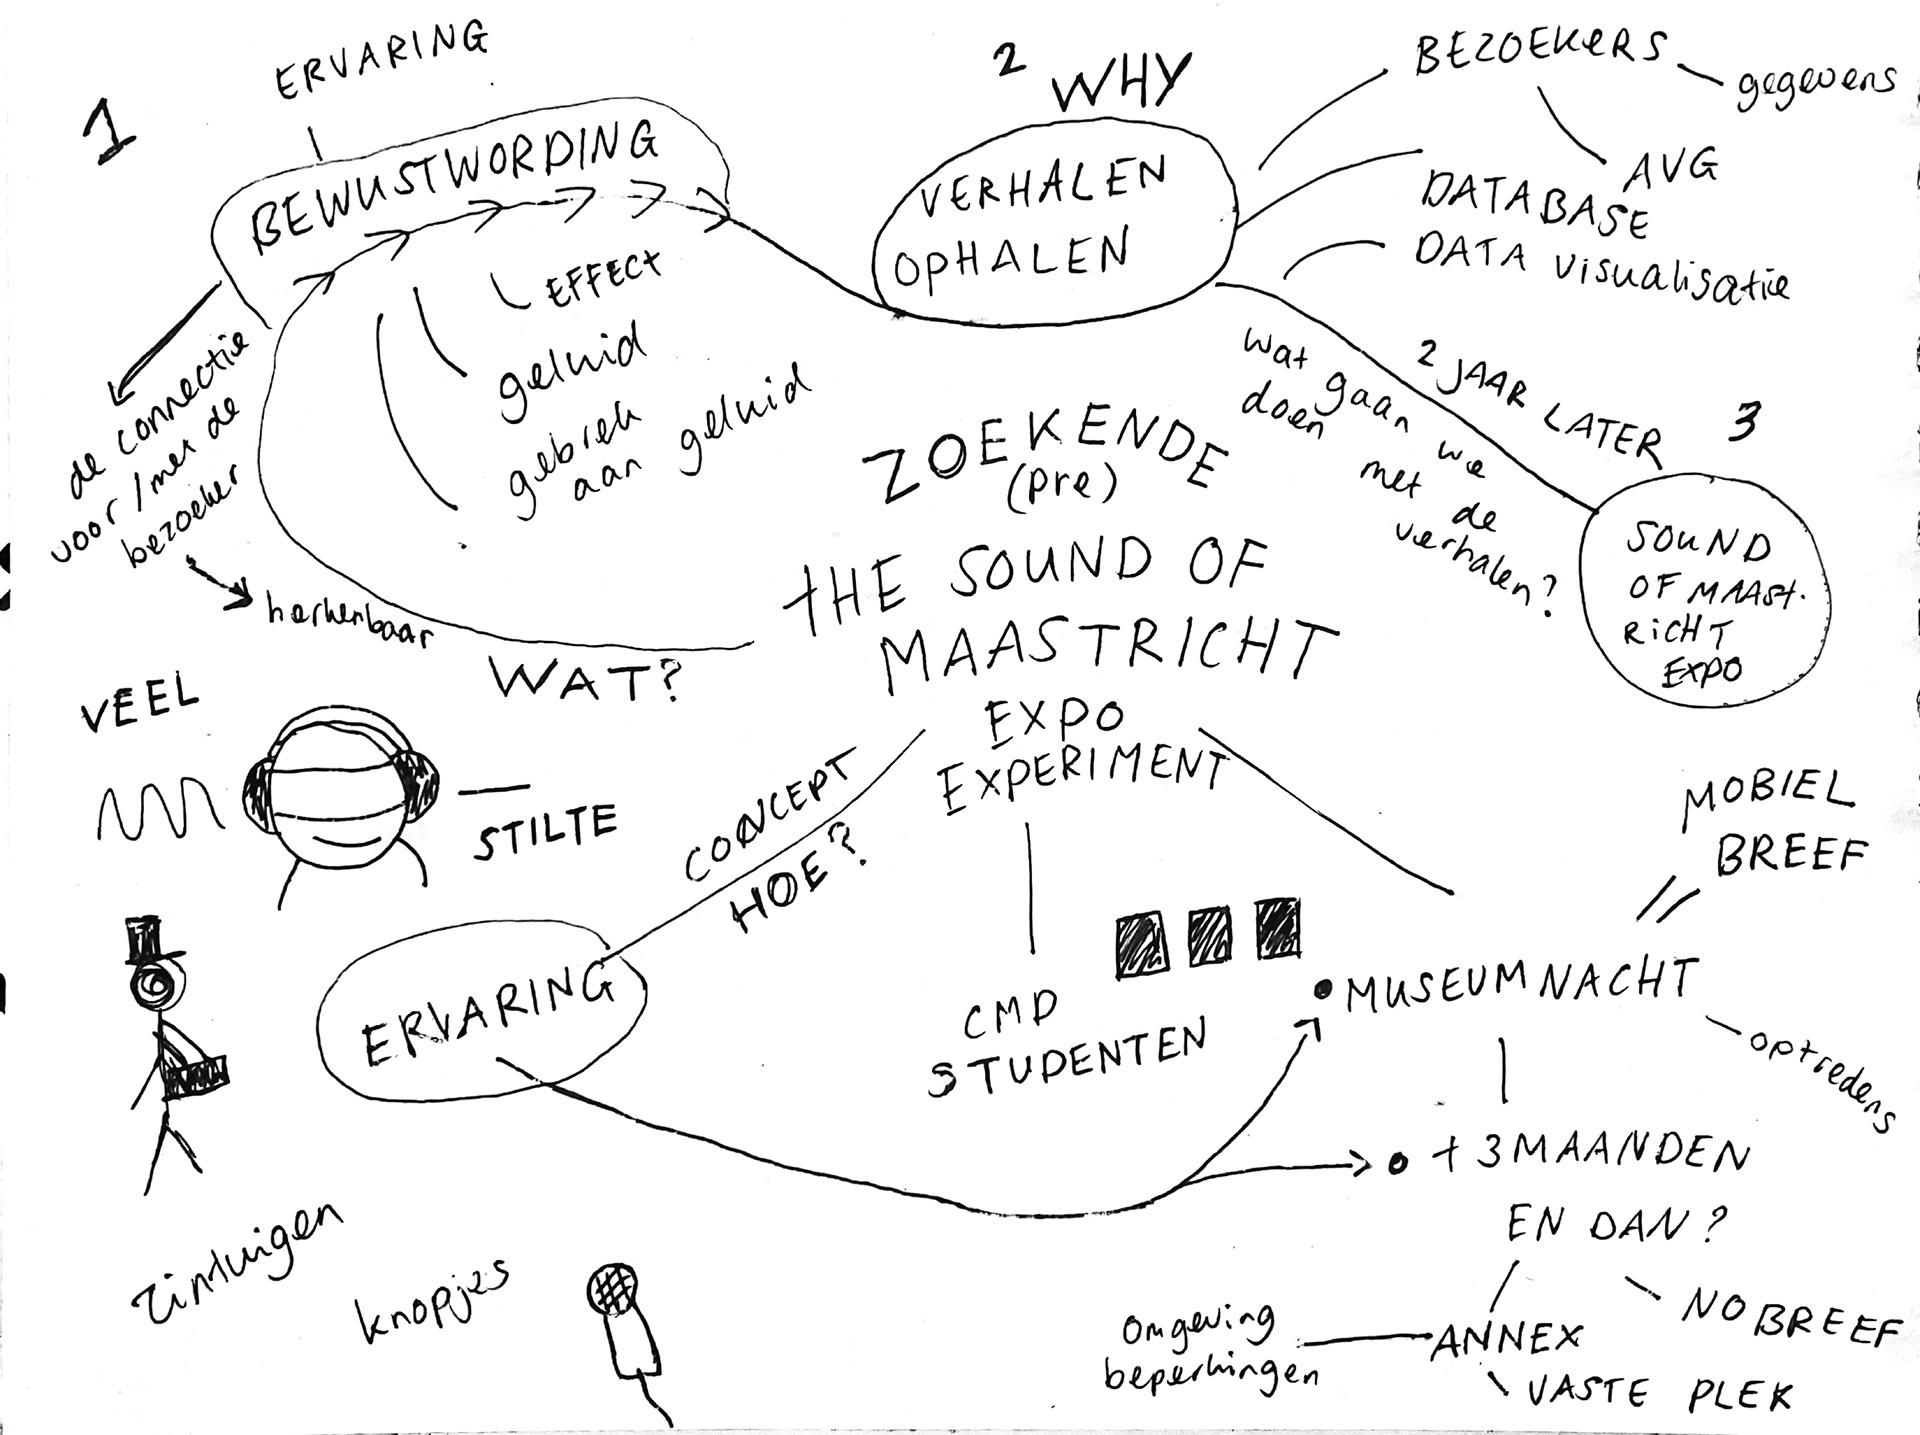 1
ERVARING
BEWUSTWORDING
EFFECT
geluid
gebrek
aan geluid
de connectie
voor/met de
bezoeker
herkenbaar
WAT?
2
WHY
VERHALEN
OPHALEN
BEZOEKERS
gegevens
AVG
DATABASE
DATA visualisatie
2 JAAR LATER
wat gaan we
doen met de
verhalen?
3
SOUND
OF MAAST.
RICHT
EXPO
ZOEKENDE
(pre)
THE SOUND OF
MAASTRICHT
EXPO
EXPERIMENT
VEEL
STILTE
CONCEPT
HOE?
ERVARING
zintuigen
knopjes
CMD
STUDENTEN
MOBIEL
BREEF
MUSEUMNACHT
optredens
+ 3 MAANDEN
EN DAN?
NOBREEF
Omgeving
beperkingen
ANNEX
VASTE PLEK